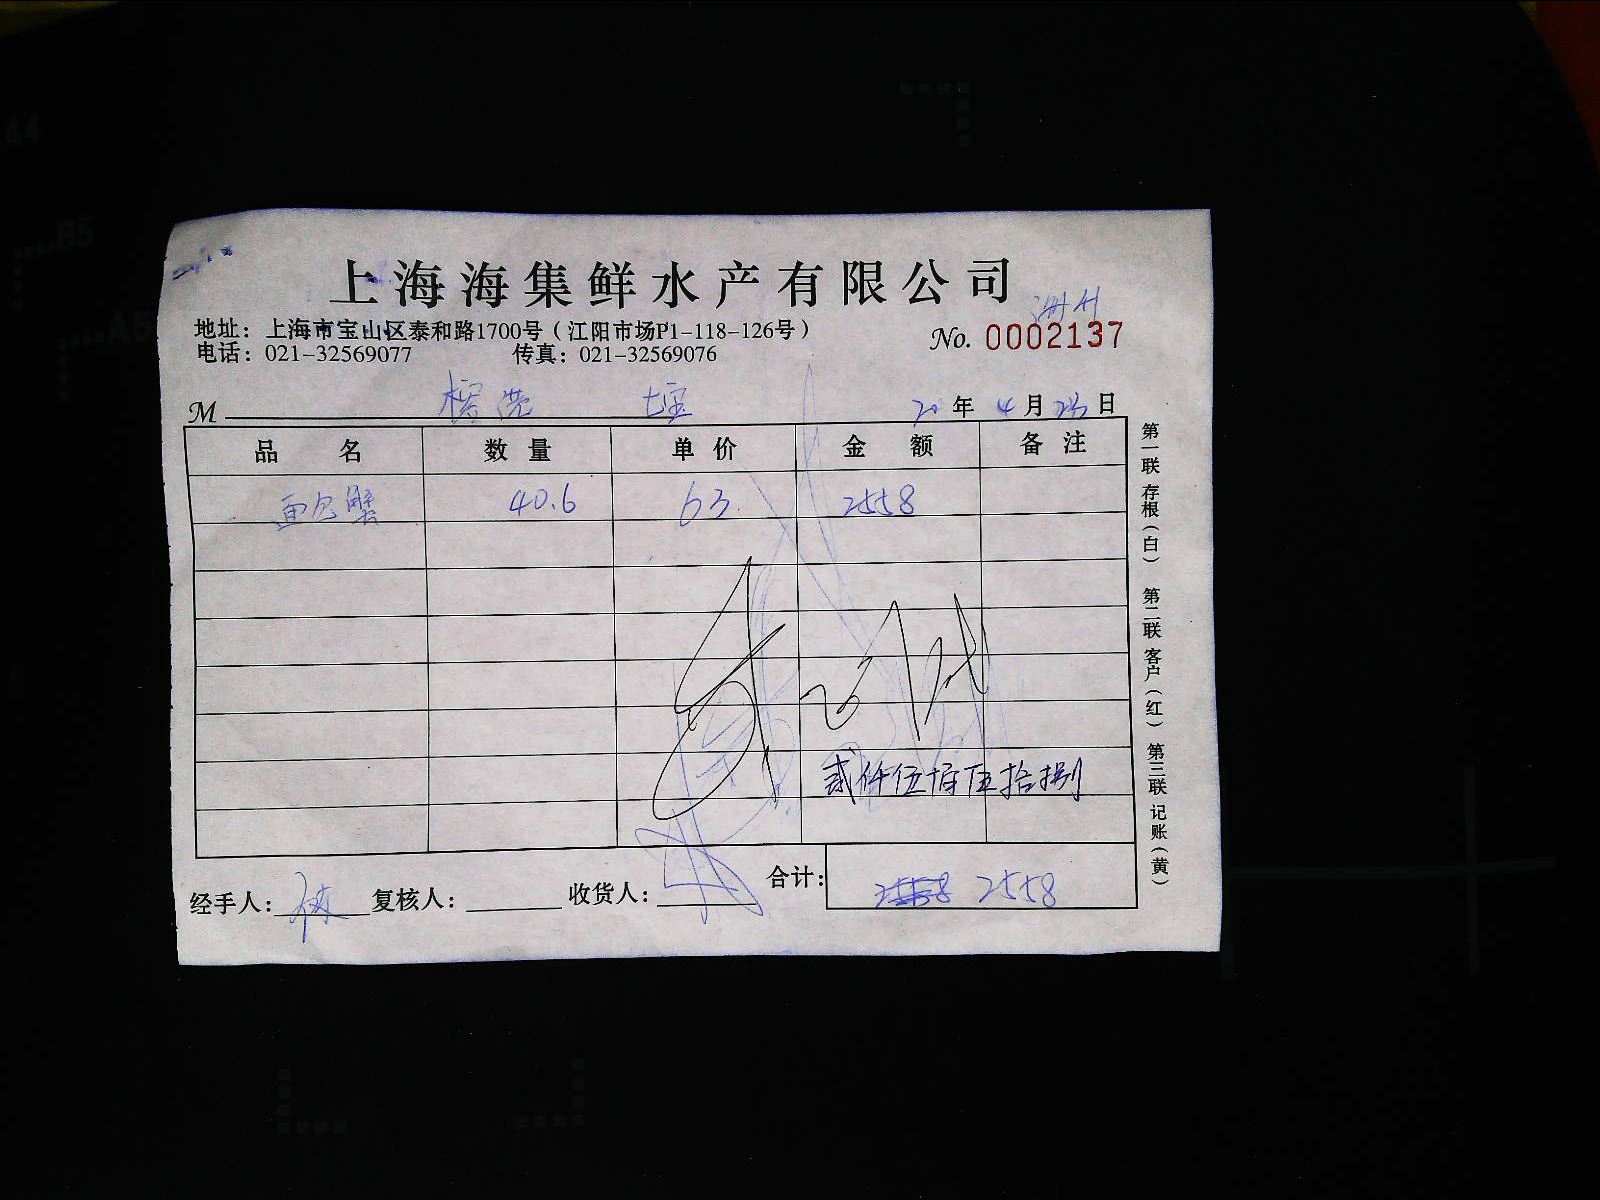 上海海集鲜水产有限公司
地址：上海市宝山区泰和路1700号（江阳市场P1-118-126号）
No. 0002137
电话：021-32569077 传真：021-32569076
M 七宝 20年4月 日
品名 数量 单价 金额 备注
面包蟹 40.6 63 2558
贰仟伍佰伍拾捌
合计： 2558 2558
经手人： 复核人： 收货人：
第一联 存根（白） 第二联 客户（红） 第三联 记账（黄）
A4
B5
A5